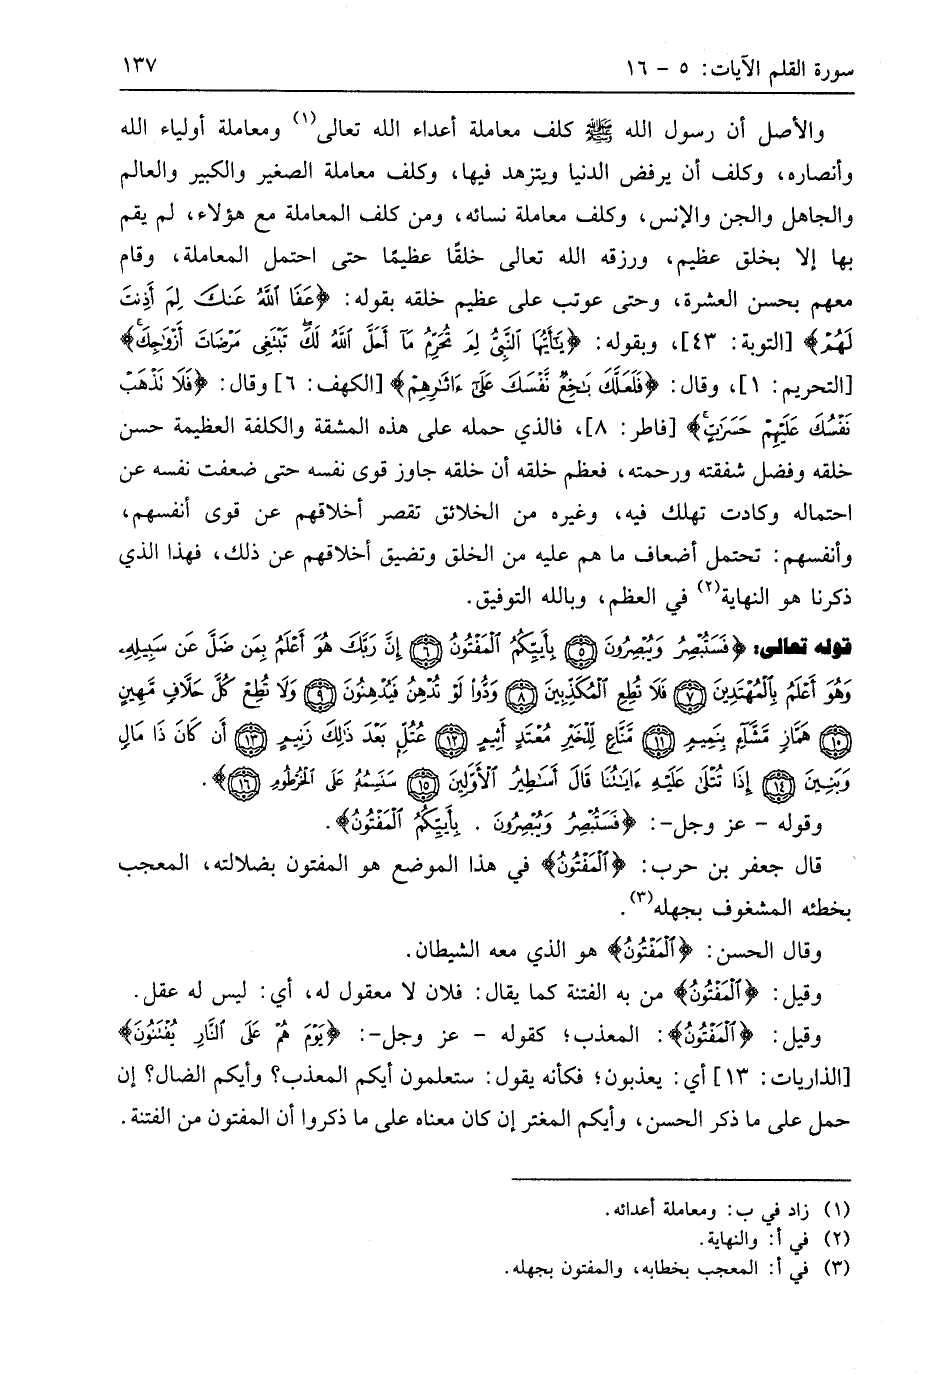 سورة القلم الآيات: ٥ - ١٦
١٣٧
والأصل أن رسول الله ﷺ كلف معاملة أعداء الله تعالى(١) ومعاملة أولياء الله
وأنصاره، وكلف أن يرفض الدنيا ويتزهد فيها، وكلف معاملة الصغير والكبير والعالم
والجاهل والجن والإنس، وكلف معاملة نسائه، ومن كلف المعاملة مع هؤلاء، لم يقم
بها إلا بخلق عظيم، ورزقه الله تعالى خلقًا عظيمًا حتى احتمل المعاملة، وقام
معهم بحسن العشرة، وحتى عوتب على عظيم خلقه بقوله: ﴿عَفَا ٱللَّهُ عَنكَ لِمَ أَذِنتَ
لَهُمْ﴾ [التوبة: ٤٣]، وبقوله: ﴿يَٰٓأَيُّهَا ٱلنَّبِيُّ لِمَ تُحَرِّمُ مَآ أَحَلَّ ٱللَّهُ لَكَۖ تَبْتَغِى مَرْضَاتَ أَزْوَٰجِكَۚ﴾
[التحريم: ١]، وقال: ﴿فَلَعَلَّكَ بَٰخِعٌ نَّفْسَكَ عَلَىٰٓ ءَاثَٰرِهِمْ﴾ [الكهف: ٦] وقال: ﴿فَلَا نَذْهَبْ
نَفْسُكَ عَلَيْهِمْ حَسَرَٰتٍۚ﴾ [فاطر: ٨]، فالذي حمله على هذه المشقة والكلفة العظيمة حسن
خلقه وفضل شفقته ورحمته، فعظم خلقه أن خلقه جاوز قوى نفسه حتى ضعفت نفسه عن
احتماله وكادت تهلك فيه، وغيره من الخلائق تقصر أخلاقهم عن قوى أنفسهم،
وأنفسهم: تحتمل أضعاف ما هم عليه من الخلق وتضيق أخلاقهم عن ذلك، فهذا الذي
ذكرنا هو النهاية(٢) في العظم، وبالله التوفيق.
قوله تعالى: ﴿فَسَتُبْصِرُ وَيُبْصِرُونَ ٥ بِأَييِّكُمُ ٱلْمَفْتُونُ ٦ إِنَّ رَبَّكَ هُوَ أَعْلَمُ بِمَن ضَلَّ عَن سَبِيلِهِۦ
وَهُوَ أَعْلَمُ بِٱلْمُهْتَدِينَ ٧ فَلَا تُطِعِ ٱلْمُكَذِّبِينَ ٨ وَدُّوا۟ لَوْ تُدْهِنُ فَيُدْهِنُونَ ٩ وَلَا تُطِعْ كُلَّ حَلَّافٍ مَّهِينٍ
١٠ هَمَّازٍ مَّشَّآءٍۭ بِنَمِيمٍ ١١ مَّنَّاعٍ لِّلْخَيْرِ مُعْتَدٍ أَثِيمٍ ١٢ عُتُلٍّۭ بَعْدَ ذَٰلِكَ زَنِيمٍ ١٣ أَن كَانَ ذَا مَالٍ
وَبَنِينَ ١٤ إِذَا تُتْلَىٰ عَلَيْهِ ءَايَٰتُنَا قَالَ أَسَٰطِيرُ ٱلْأَوَّلِينَ ١٥ سَنَسِمُهُۥ عَلَى ٱلْخُرْطُومِ ١٦﴾.
وقوله - عز وجل-: ﴿فَسَتُبْصِرُ وَيُبْصِرُونَ . بِأَييِّكُمُ ٱلْمَفْتُونُ﴾.
قال جعفر بن حرب: ﴿ٱلْمَفْتُونُ﴾ في هذا الموضع هو المفتون بضلالته، المعجب
بخطئه المشغوف بجهله(٣).
وقال الحسن: ﴿ٱلْمَفْتُونُ﴾ هو الذي معه الشيطان.
وقيل: ﴿ٱلْمَفْتُونُ﴾ من به الفتنة كما يقال: فلان لا معقول له، أي: ليس له عقل.
وقيل: ﴿ٱلْمَفْتُونُ﴾: المعذب؛ كقوله - عز وجل-: ﴿يَوْمَ هُمْ عَلَى ٱلنَّارِ يُفْتَنُونَ﴾
[الذاريات: ١٣] أي: يعذبون؛ فكأنه يقول: ستعلمون أيكم المعذب؟ وأيكم الضال؟ إن
حمل على ما ذكر الحسن، وأيكم المغتر إن كان معناه على ما ذكروا أن المفتون من الفتنة.
(١) زاد في ب: ومعاملة أعدائه.
(٢) في أ: والنهاية.
(٣) في أ: المعجب بخطابه، والمفتون بجهله.